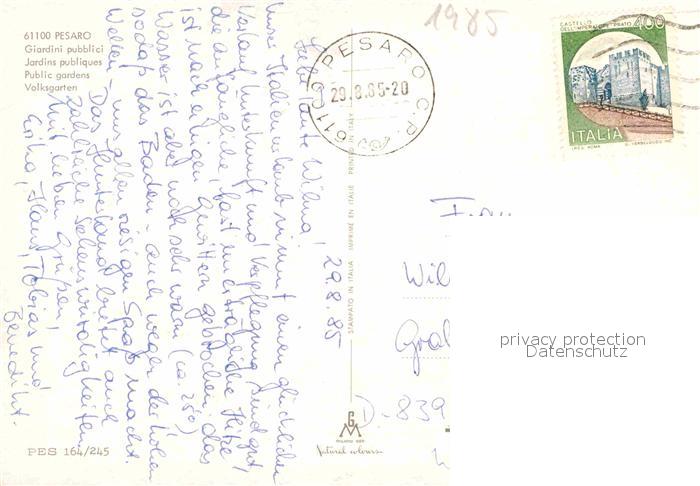 61100 PESARO
Giardini pubblici
Jardins publiques
Public gardens
Volksgarten
1985
61100 PESARO C.P.
29.8.85-20
CASTELLO DELL'IMPERATORE - PRATO 400
ITALIA
29.8.85
Liebe Tante Wilma!
Unser Italienurlaub nimmt einen glücklichen
Verlauf. Unterkunft und Verpflegung sind gut,
die anfängliche, fast unerträgliche Hitze
ist nach einigen Gewittern gebrochen, das
Wasser ist aber noch sehr warm (ca. 25°)
sodaß das Baden - auch wegen der hohen
Wellen - uns allen riesigen Spaß macht.
Das Hinterland bietet auch
zahlreiche Sehenswürdigkeiten.
Mit lieben Grüßen!
Erika, Hans, Tobias und
Benedikt.
STAMPATO IN ITALIA IMPRIMÉ EN ITALIE PRINTED IN ITALY
Frau
Wil
D-839
privacy protection
Datenschutz
GM
MILANO
Natural colours
PES 164/245